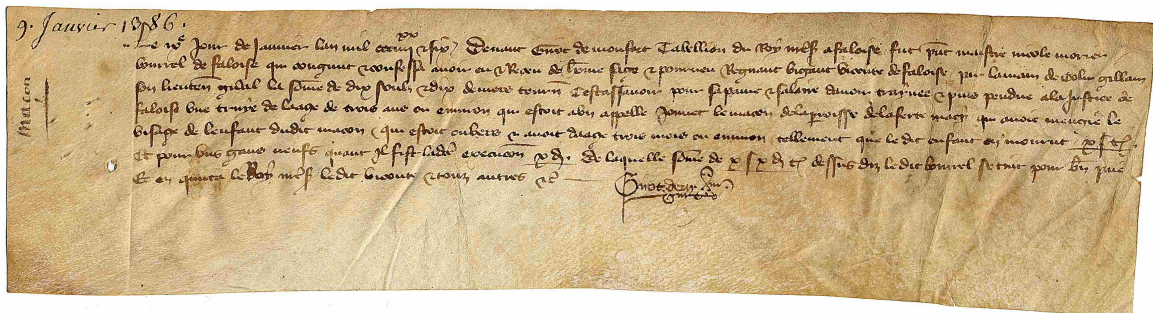 9. Janvier 1386.
Macon
Le ixe Jour de Janvier lan mil ccc iiii xx et six devant Guiot de monfort Tabellion du Roy nre s. a faloise fut pnt maistre nicole morier
bourrel de faloise qui congnut et confessa avoir eu et Receu de hõme sage et pourveu Regnaut bigaut viconte de faloise par la main de Colin gillain
son lieuten gnal la sõme de dix soulz et dix deniers tourn Cestassavoir pour sa paine et salaire davoir traynee et puis pendue a la Justice de
faloise une truye de laage de trois ans ou environ qui estoit a un appelle Jonnet le macon de la proisse de la ferte mace qui avoit mengie le
visage de lenfant dudit macon et qui estoit ou bers et avoit daage trois mois ou environ tellement que le dit enfant en mourut x s t.
Et pour uns gans neufs quant Il fist ladte execucon x d. De laquelle sõme de x s x d t dessus diz le dit bourrel se tint pour bn paie
Et en quicta le Roy nre s. le dit viconte et touz autres etc
Guiot